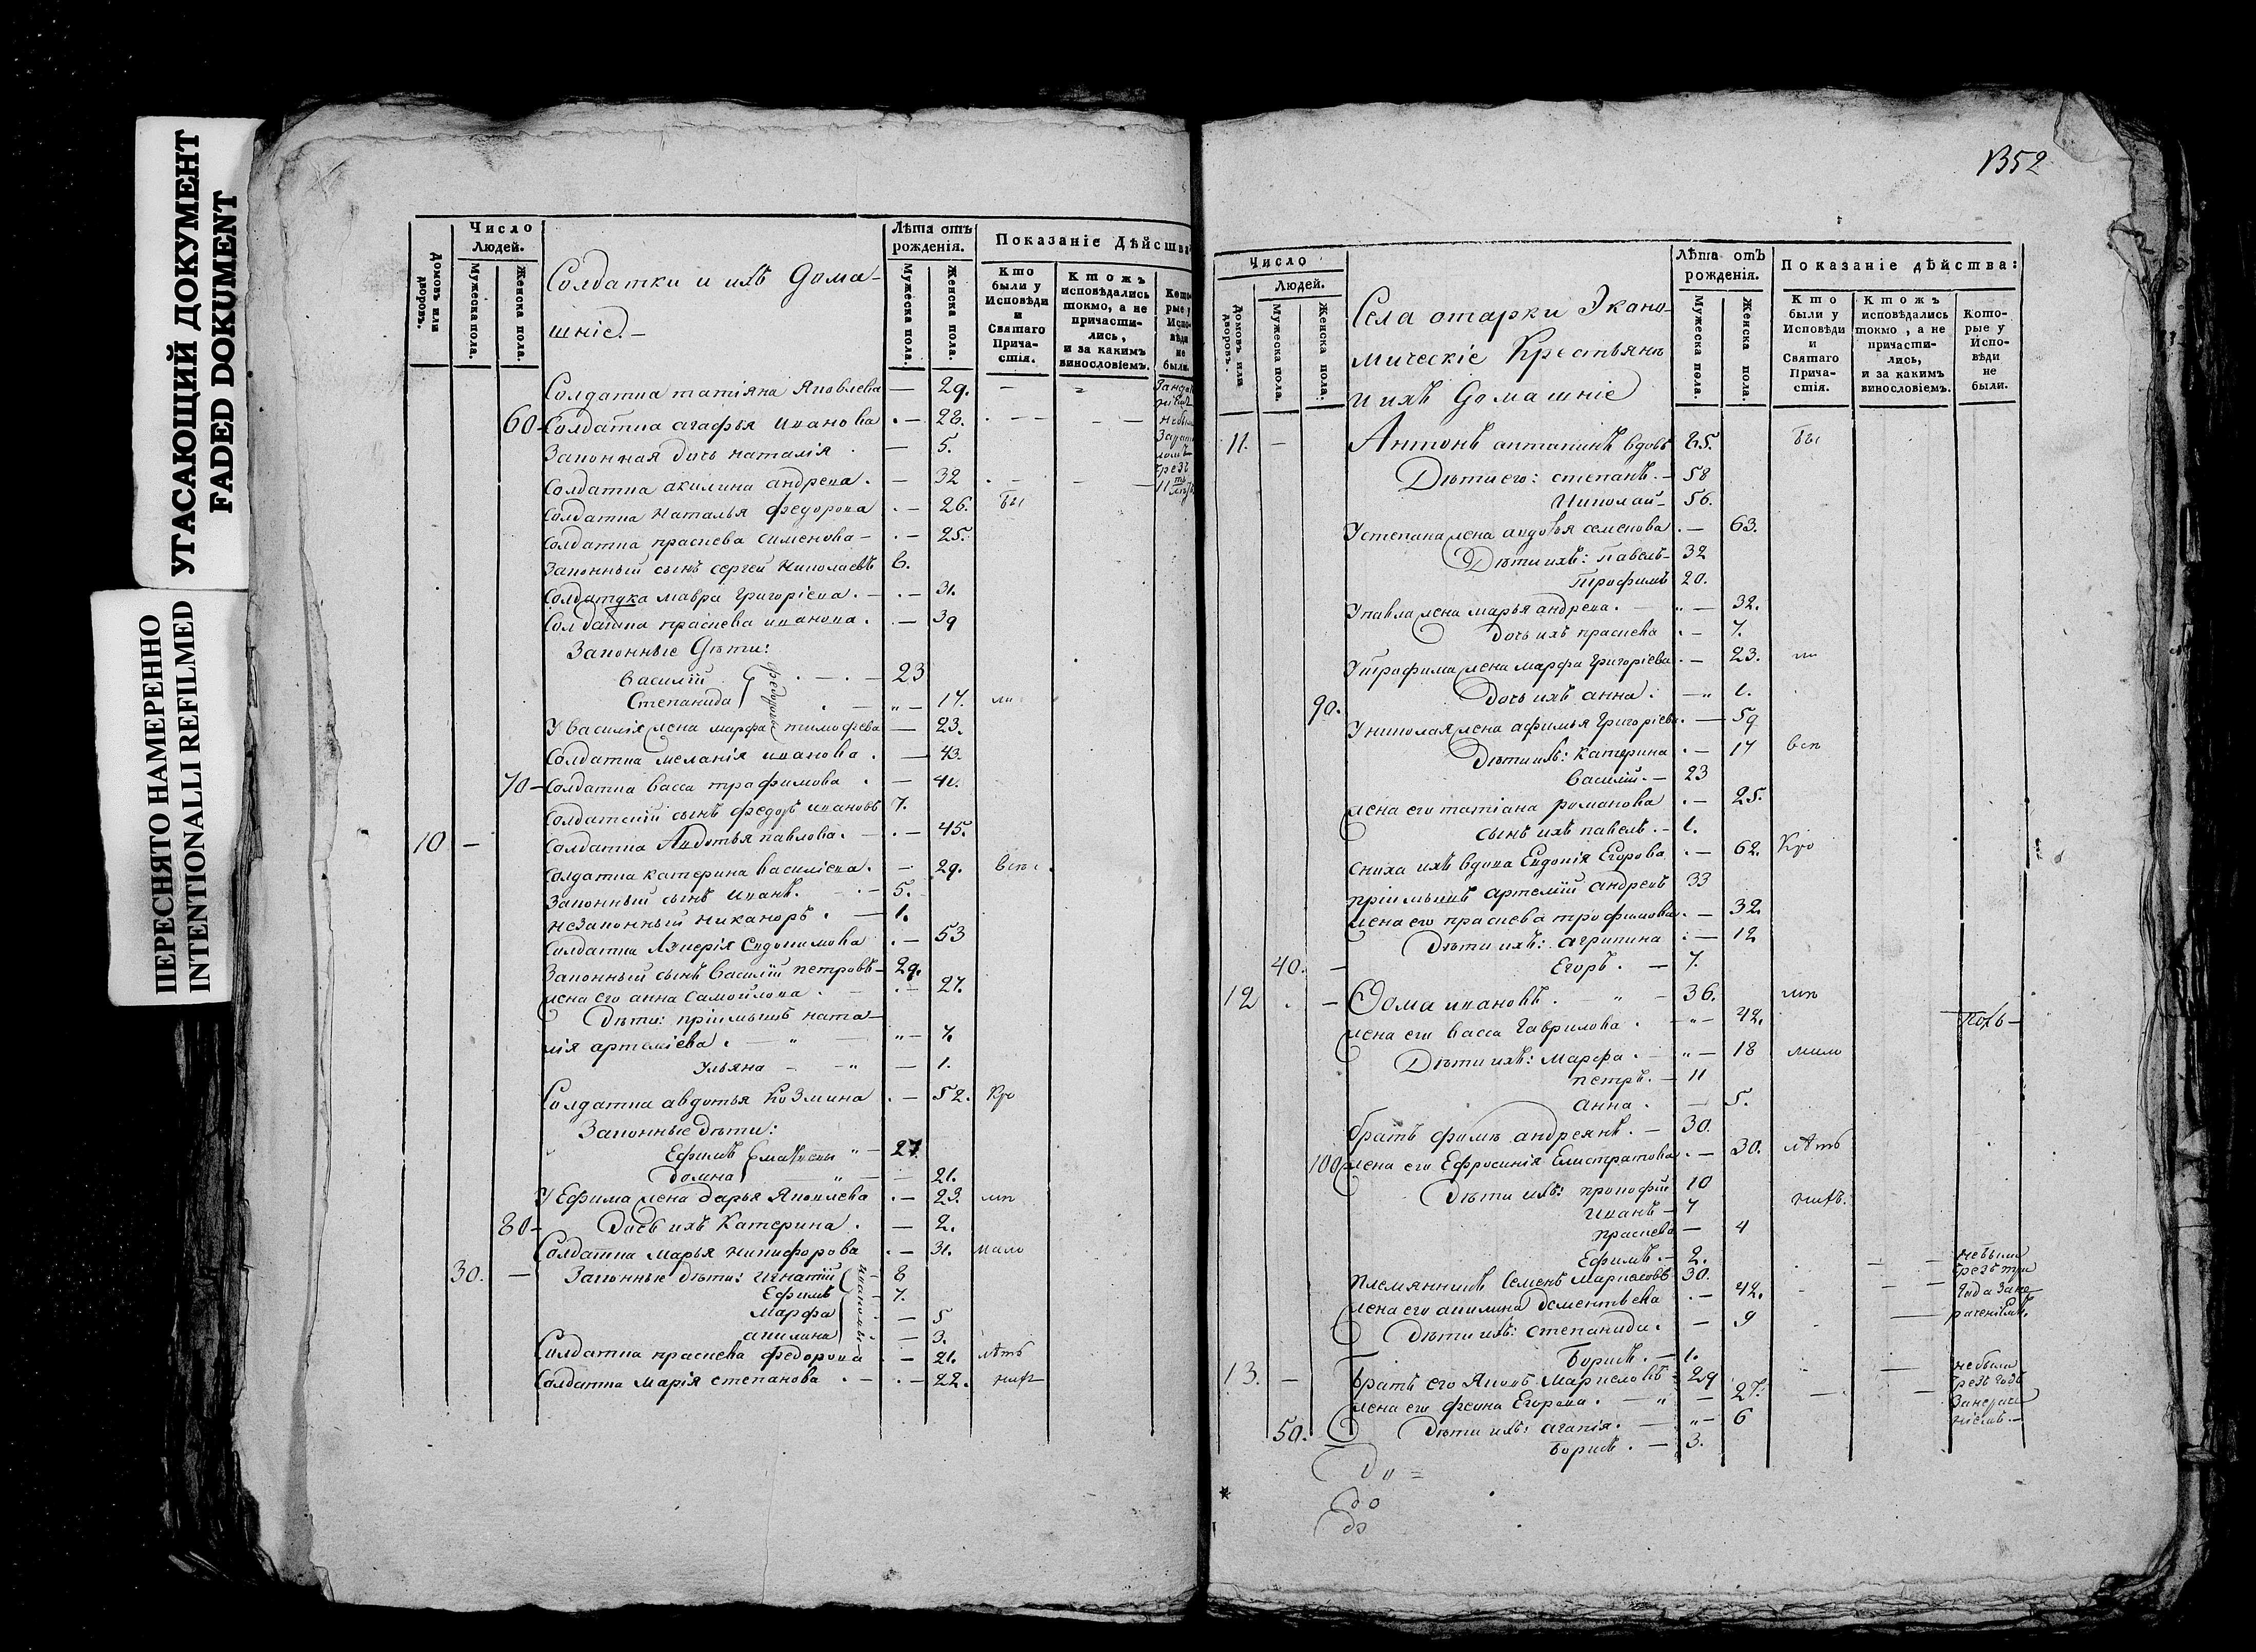 УТАСАЮЩИЙ ДОКУМЕНТ
FADED DOKUMENT
ПЕРЕСНЯТО НАМЕРЕННО
INTENTIONALLI REFILMED
Домовъ или дворовъ.
Число
Людей.
Мужеска пола.
Женска пола.
Солдатки и ихъ дома-
шніе.-
Лѣта отъ
рожденія.
Мужеска пола.
Женска пола.
Показаніе Дѣйства
Кто были у Исповѣди и Святаго Прича-стія.
Ктожъ исповѣдались токмо, а не причасти-лись, и за какимъ винословіемъ.
Кото-рые у Испо-вѣди не были.
Солдатка татіяна Яковлева — 29.
60 - Солдатка агафья иванова — 28.
Законная дочь наталія — 5.
Солдатка акилина андреева. — 32
Солдатка Наталья федорова — 26. бы
Солдатка прасковa сименова — 25.
Законный сынъ сергей николаевъ 6.
Солдатка мавра григоріева. — 31.
Солдатка прасковa иванова. — 39
Законные дѣти:
Василій — 23
Степанида — 17. ли
У василія жена марфа тимофеева — 23.
Солдатка меланія иванова. — 43.
70 - Солдатка васса трофимова — 41.
Солдатскій сынъ федоръ ивановъ 7.
10 — Солдатка Авдотья павлова. — 45.
Солдатка катерина василіева. — 29. всѣ
Законный сынъ иванъ. — 5.
незаконный никаноръ. — 1.
Солдатка Евдокимова — 53
Законный сынъ василій петровъ — 29.
жена его анна самойлова. — 27.
Дѣти: пріимышъ ната-
лія артеміева. — 7.
Ульяна — 1.
Солдатка авдотья козмина — 52. Кро
Законные дѣти:
Ефимъ — 27.
домна — 21.
У Ефима жена дарья Яковлева — 23. мѣ
80 - Дочь ихъ катерина. — 2.
Солдатка марья никифорова — 31. мало
30. — Законные дѣти: игнатій — 8
Ефимъ — 7.
марфа — 5
акилина — 3.
Солдатка прасковa федорова — 21. лѣтъ
Солдатка марія степанова. — 22. нихъ
1352
Домовъ или дворовъ.
Число
Людей.
Мужеска пола.
Женска пола.
Села отарки Экано-
мическіе Крестьянъ
и ихъ домашніе
Лѣта отъ
рожденія.
Мужеска пола.
Женска пола.
Показаніе дѣйства:
Кто были у Исповѣди и Святаго Прича-стія.
Ктожъ исповѣдались токмо, а не причасти-лись, и за какимъ винословіемъ.
Кото-рые у Испо-вѣди не были.
11. — Антонъ антипинъ вдовъ 85. бы
Дѣти его: степанъ. — 58
Николай — 56.
У степана жена авдотья семенова. — 63.
Дѣти ихъ: павелъ — 32
трофимъ 20.
У павла жена марья андреева. — 32.
дочь ихъ прасковa — 7.
У трофима жена марфа григоріева. — 23.
90. Дочь ихъ анна. — 1.
У николая жена афимья григоріева. — 59
Дѣти ихъ: катерина — 17 всѣ
василій. — 23
жена его татіана романова — 25.
сынъ ихъ павелъ. — 1.
сноха ихъ вдова Евдокія Егорова — 62. Кро
пріимышъ артемій андреевъ 33
жена его прасковa трофимова. — 32.
Дѣти ихъ: агрипина — 12
40. — Егоръ. — 7.
12 — Фома ивановъ. — 36. мѣ
жена его васса гаврилова. — 42.
Дѣти ихъ: марфа. — 18 мало
петръ. — 11
анна. — 5.
братъ фомы андреянъ. — 30.
100 жена его Ефросинія Елистратова — 30. лѣтъ
Дѣти ихъ: прокофій 10
иванъ — 7 нихъ.
прасковa — 4
Ефимъ. — 2.
племянникъ Семенъ 30.
жена его акилина дементьева — 42.
Дѣти ихъ: степанида. — 9
Борисъ. — 1.
не были
чрезъ три
года
13. — братъ его Яковъ 29
жена его фекла Егорова. — 27.
50. Дѣти ихъ: агапія. — 6
Борисъ. — 3.
не были
чрезъ годъ
До
До